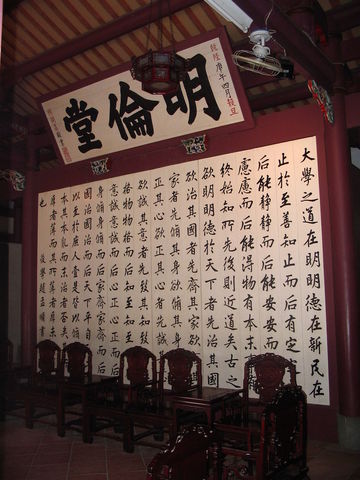 明倫堂
乾隆庚午四月穀旦
大學之道在明明德在新民在
止於至善知止而后有定
后能靜靜而后能安安而
慮慮而后能得物有本末
終始知所先後則近道矣古之
欲明明德於天下者先治其國
欲治其國者先齊其家欲
家者先脩其身欲脩其身
正其心欲正其心者先誠
欲誠其意者先致其知致
格物物格而后知至知至而
意誠意誠而后心正心正而
身脩身脩而后家齊家齊而后
國治國治而后天下平自
以至於庶人壹是皆以脩
本其本亂而末治者否矣
厚者薄而其所薄者厚未
也 後學趙孟頫書